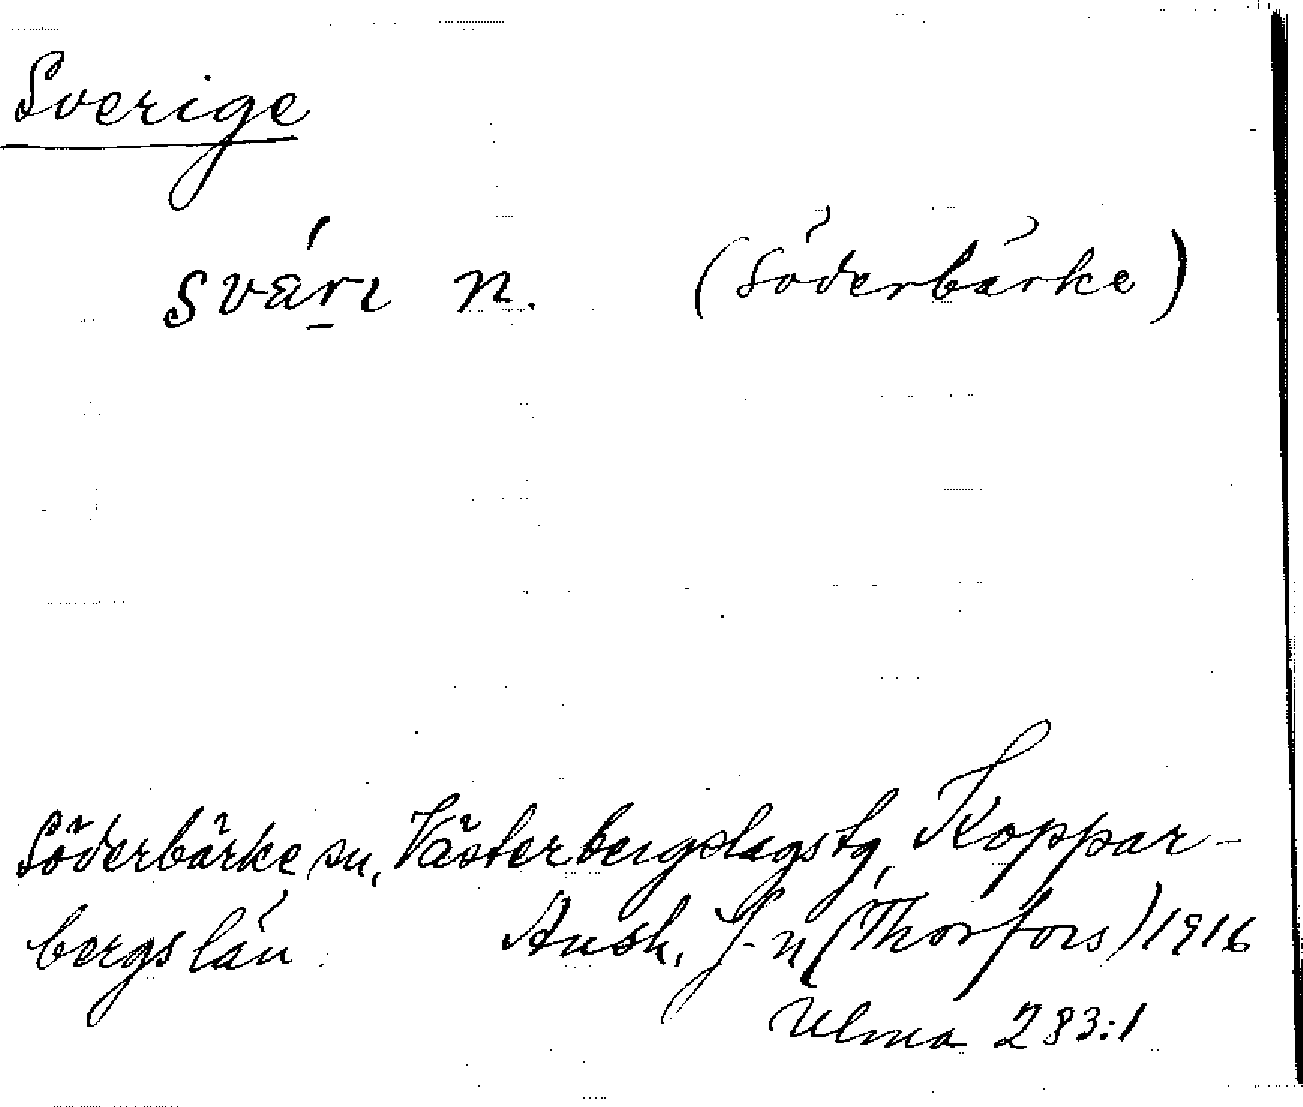 Sverige
svärı n. (Söderbärke)
Söderbärke sn, Västerbergslagstg, Koppar-
bergs län. Ausk. J-n (Thorfors) 1916
Ulma 283:1